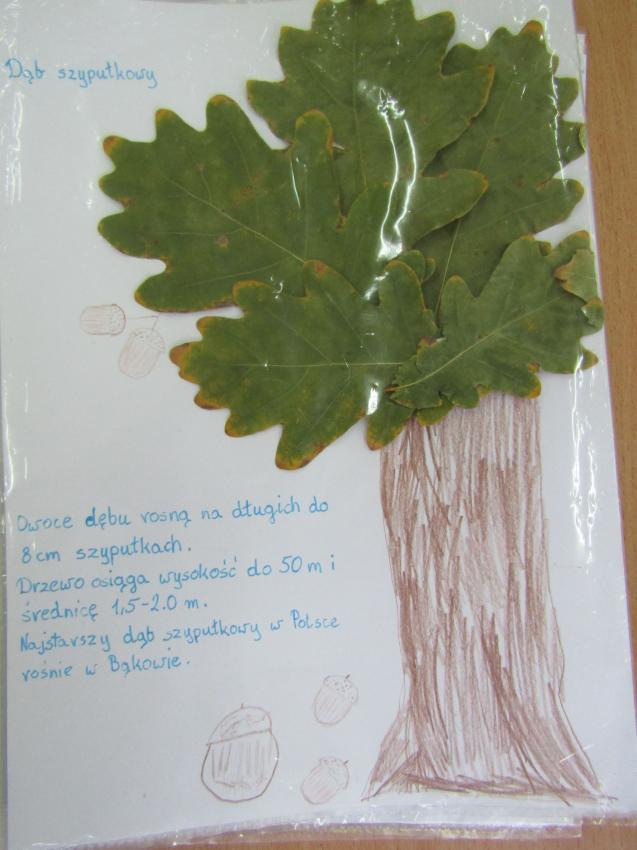 Dąb szypułkowy
Owoce dębu rosną na długich do
8 cm szypułkach.
Drzewo osiąga wysokość do 50 m i
średnicę 1,5-2.0 m.
Najstarszy dąb szypułkowy w Polsce
rośnie w Bąkowie.